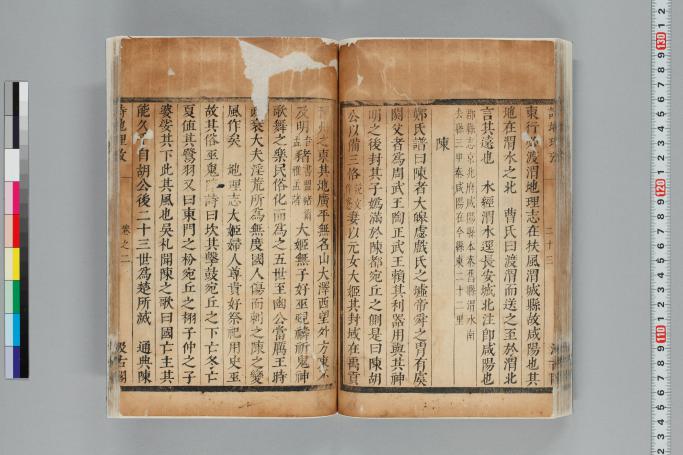 東行必渡渭地理志在扶風渭城縣故咸陽也其
地在渭水之北 曹氏曰渡渭而送之至於渭北
言其遠也 水經渭水逕長安城北注即咸陽也
郡縣志京兆府咸陽縣本秦舊縣渭水南
去縣三里秦咸陽在今縣東二十二里
陳
鄭氏譜曰陳者大皞虙戲氏之墟帝舜之冑有虞
閼父者為周武王陶正武王賴其利器用與其神
明之後封其子媯滿於陳都宛丘之側是曰陳胡
公以備三恪妻以元女大姬其封域在禹貢
之東其地廣平無名山大澤西望外方東不
及明豬 大姬無子好巫覡禱祈鬼神
歌舞之樂民俗化而為之五世至幽公當厲王時
衰大夫淫荒所為無度國人傷而刺之陳之變
風作矣 地理志大姬婦人尊貴好祭祀用史巫
故其俗巫鬼 詩曰坎其擊鼓宛丘之下亡冬亡
夏值其鷺羽又曰東門之枌宛丘之栩子仲之子
婆娑其下此其風也吳札聞陳之歌曰國亡主其
能久乎自胡公後二十三世為楚所滅 通典陳
詩地理攷
卷之二
汲古閣